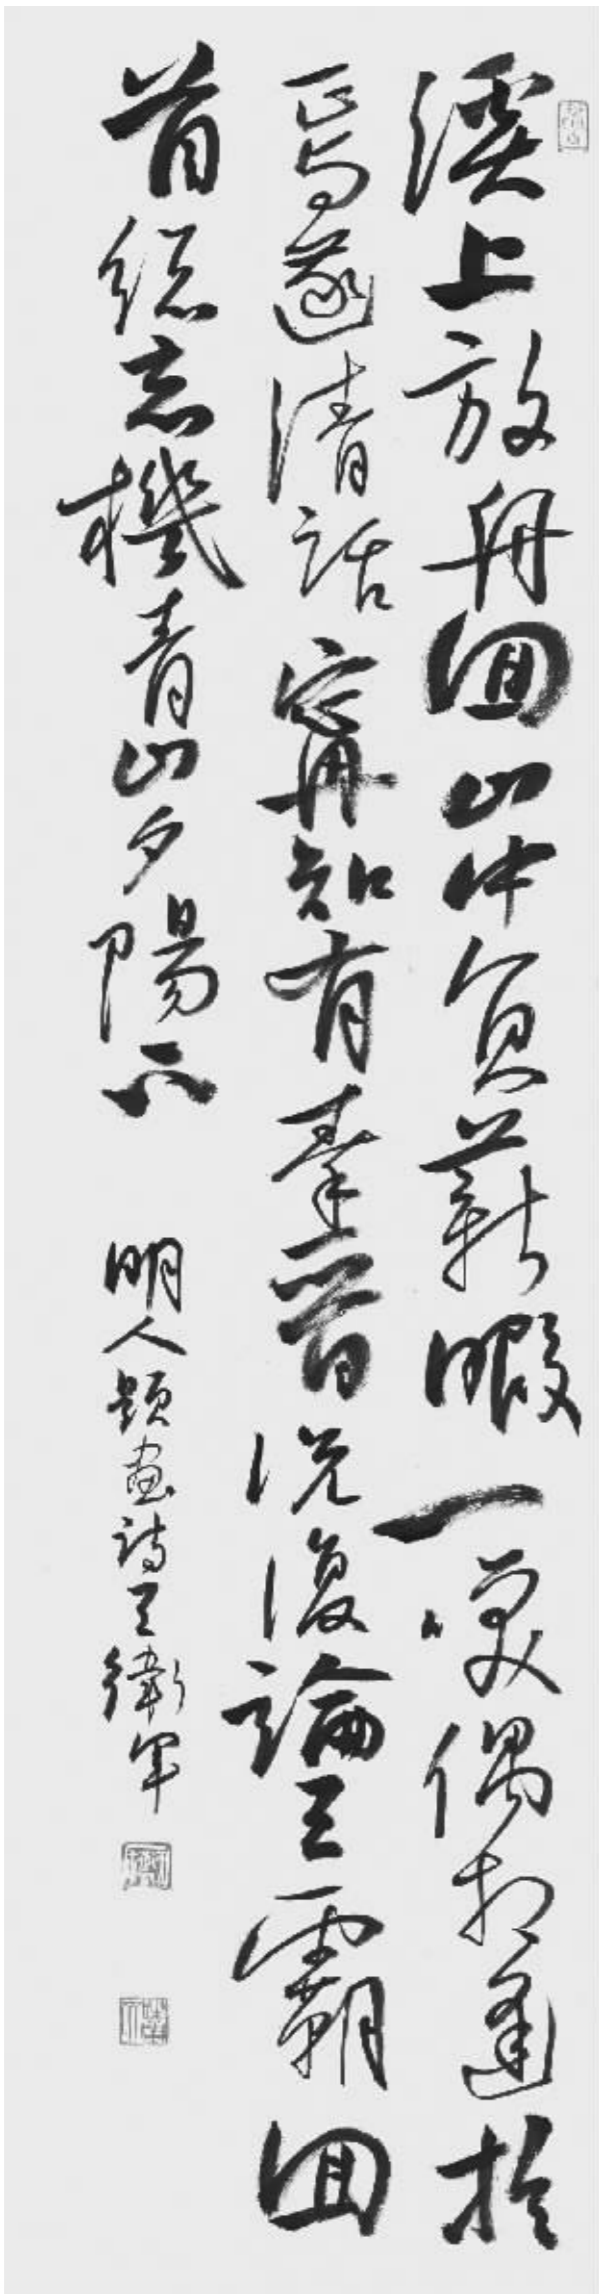 溪上放舟回山中負薪暇一咲偶相逢於
焉遂清話寧知有秦晉況復論王霸回
首總忘機青山夕陽下
明人題畫詩王衛軍